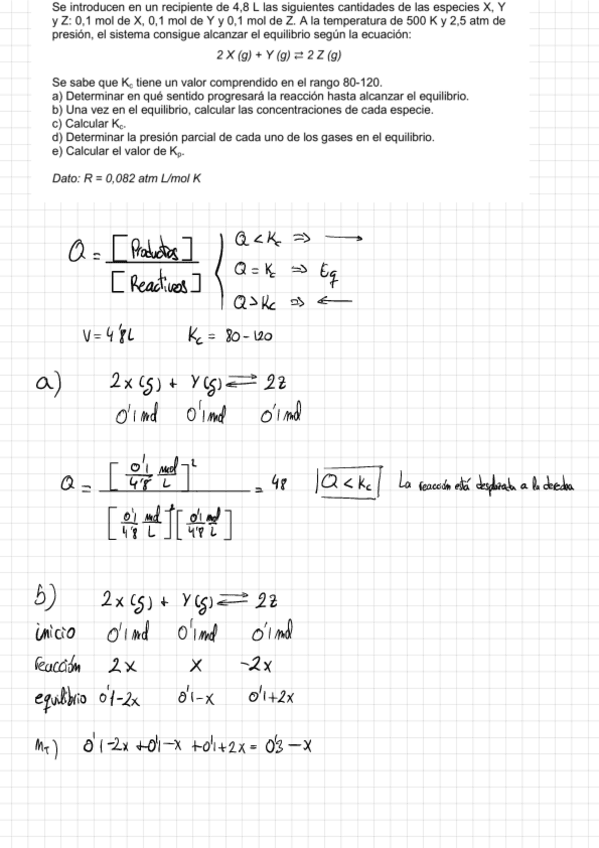 Se introducen en un recipiente de 4,8 L las siguientes cantidades de las especies X, Y
y Z: 0,1 mol de X, 0,1 mol de Y y 0,1 mol de Z. A la temperatura de 500 K y 2,5 atm de
presión, el sistema consigue alcanzar el equilibrio según la ecuación:
2 X (g) + Y (g) ⇄ 2 Z (g)
Se sabe que Kc tiene un valor comprendido en el rango 80-120.
a) Determinar en qué sentido progresará la reacción hasta alcanzar el equilibrio.
b) Una vez en el equilibrio, calcular las concentraciones de cada especie.
c) Calcular Kc.
d) Determinar la presión parcial de cada uno de los gases en el equilibrio.
e) Calcular el valor de Kp.
Dato: R = 0,082 atm L/mol K
Q = [Productos] / [Reactivos]
Q < Kc ⇒ →
Q = Kc ⇒ Eq
Q > Kc ⇒ ←
V = 4'8L Kc = 80-120
a) 2x(g) + Y(g) ⇄ 2z
0'1 mol 0'1 mol 0'1 mol
Q = [0'1/4'8 mol/L]² / [0'1/4'8 mol/L]² [0'1/4'8 mol/L] = 48 |Q < Kc| La reacción está desplazada a la derecha
b) 2x(g) + Y(g) ⇄ 2z
inicio 0'1 mol 0'1 mol 0'1 mol
reacción 2x x -2x
equilibrio 0'1-2x 0'1-x 0'1+2x
MT) 0'1-2x+0'1-x+0'1+2x = 0'3-x